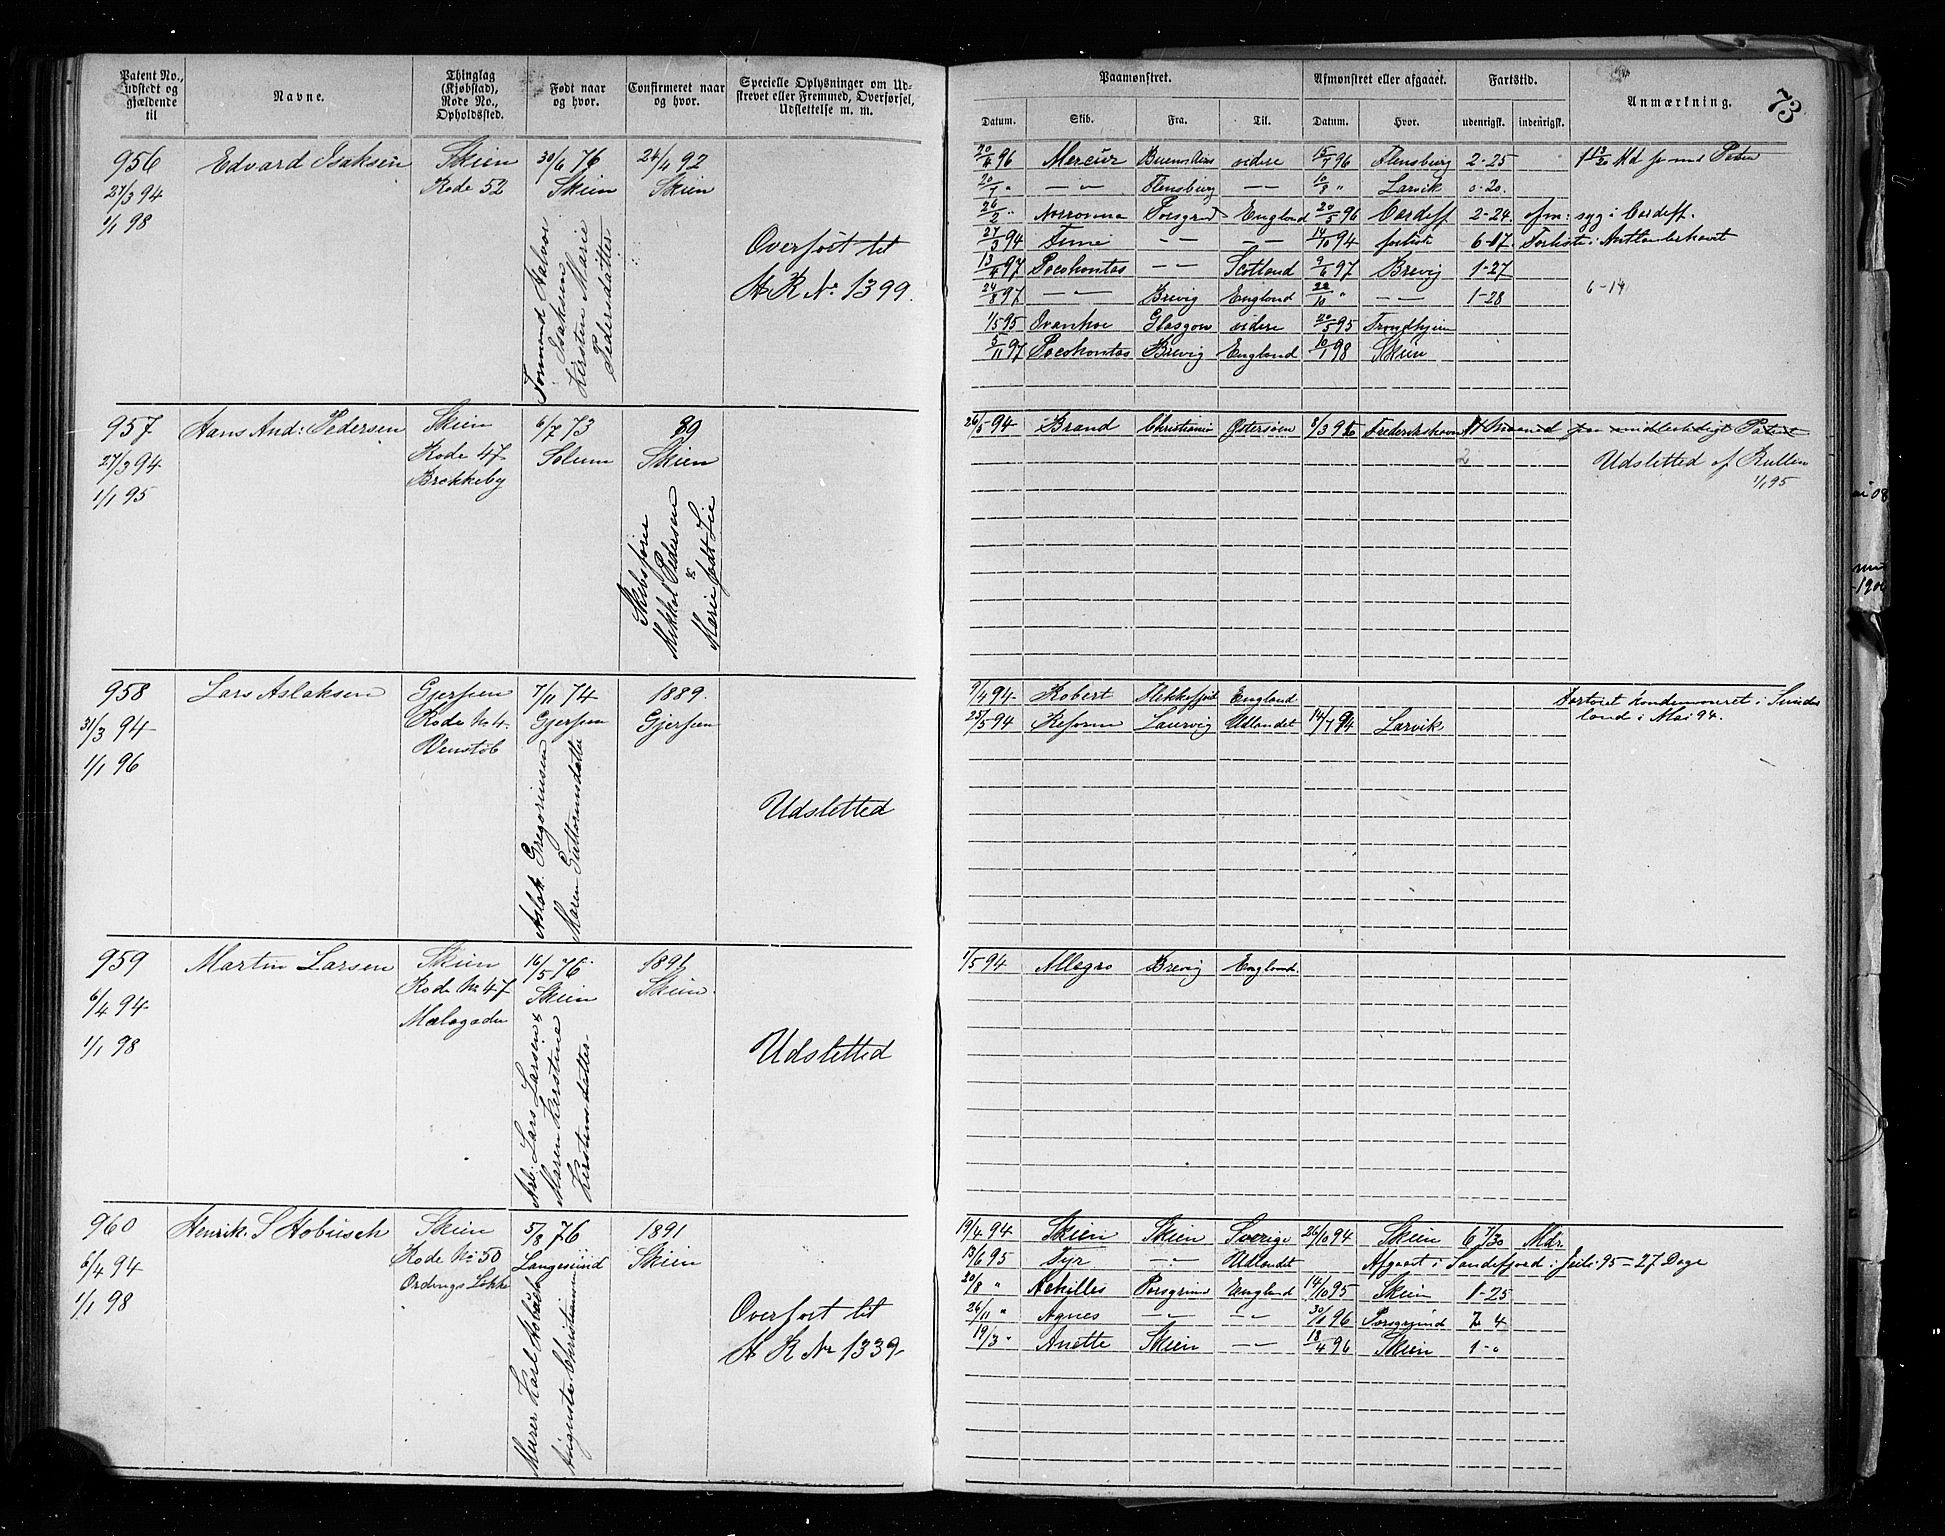 Patent No., udstedt og gjældende til
Navne.
Thinglag (Kjøbstad), Rode No., Opholdssted.
Født naar og hvor.
Confirmeret naar og hvor.
Specielle Oplysninger om Udskrevet eller Fremmed, Overførsel, Udslettelse m. m.
Paamønstret.
Afmønstret eller afgaaet.
Fartstid.
Anmærkning.
73
Datum. Skib. Fra. Til. Datum. Hvor. udenrigsk. indenrigsk.
956 Edvard Isaksen Skien 30/6 76 24/4 92
27/3 94 Rode 52 Skien Skien
1/1 98
Tormand Halvor
Isaksen
Kirsten Marie
Pedersdatter
Overført til
A R No 1399.
20/4 96 Mercur Buenos Aires videre 15/7 96 Flensburg 2-25
20/7 " — " — Flensburg — — 10/8 " Larvik 0-20.
26/2 " Norrønna Porsgrund England 20/5 96 Cardeff 2-24. afm: syg i Cardeff.
27/3 94 — — — — 14/10 94 forliste 6-17. Forliste i
13/4 97 Pocohontas — — Scotland 9/6 97 Brevig 1-27
24/8 97 — — Brevig England 22/10 " — — 1-28 6-14
1/5 95 Ovanhoe Glasgow videre 20/5 95 Trondhjem
5/11 97 Pocohontas Brevig England 10/1 98 Skien
957 Hans And: Pedersen Skien 6/7 73 89
27/3 94 Rode 47 Solum Skien
1/1 95 Brekkeby
Skibsfører
Mikkel Pedersen
&
Marie født Lie
26/5 94 Brand Christiania Østersøen 8/3 96 Frederikshavn Maaned paa midlertidigt Patent
2
Udsletted af Rullen
1/1 95
958 Lars Aslaksen Gjerpen 7/11 74 1889.
31/3 94 Rode No 4. Gjerpen Gjerpen
1/1 96 Venstøb
Aslak Gregoriussen
Maren Guttormsdatter
Udslettet
9/4 94 Robert Flekkefjord England
23/5 94 Reform Laurvig Udlandet 14/7 94 Larvik
Fartøiet Kondemneret i
land i Mai 94.
959 Martin Larsen Skien 16/5 76 1891
6/4 94 Rode No 47 Skien Skien.
1/1 98 Mælagada
Arb. Lars Larsen &
Maren Kirstine
Kirstensdatter
Udslettet
1/5 94 Allegro Brevig England
960 Henrik S Hobusch Skien 5/8 76 1891
6/4 94 Rode No 50 Langesund Skien
1/1 98 Ordrups Løkke
Murer Karl
Auguste Christiansen
Overført til
A R No 1339
19/4 94 Skien Skien Sverige 26/10 94 Skien 6 7/30 Mdr.
13/6 95 Tyr — " — Udlandet Afgaaet i Sandefjord i Juli 95 = 27 Dage
20/8 " Achilles Porsgrund England 14/10 95 Skien 1-25
26/11 " Agnes — — — — 30/1 96 Porsgrund 2 4
19/3 " Anette Skien — — 18/4 96 Skien 1 - "